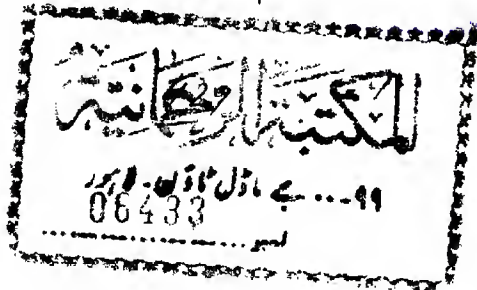 المكتبة الرحمانية
۹۹.... جے ماڈل ٹاؤن - لاہور
06433
نمبر